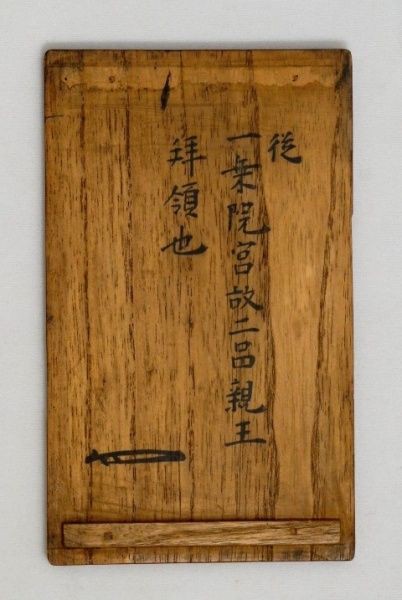 従
一乗院宮故二品親王
拝領也